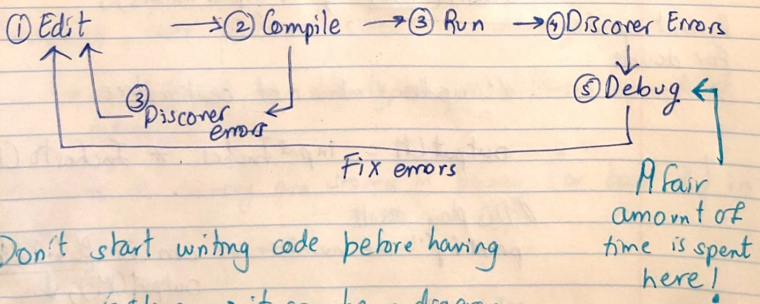 ① Edit → ② Compile → ③ Run → ④ Discover Errors
③ Discover errors
⑤ Debug
Fix errors
A fair
amount of
time is spent
here!
Don't start writing code before having